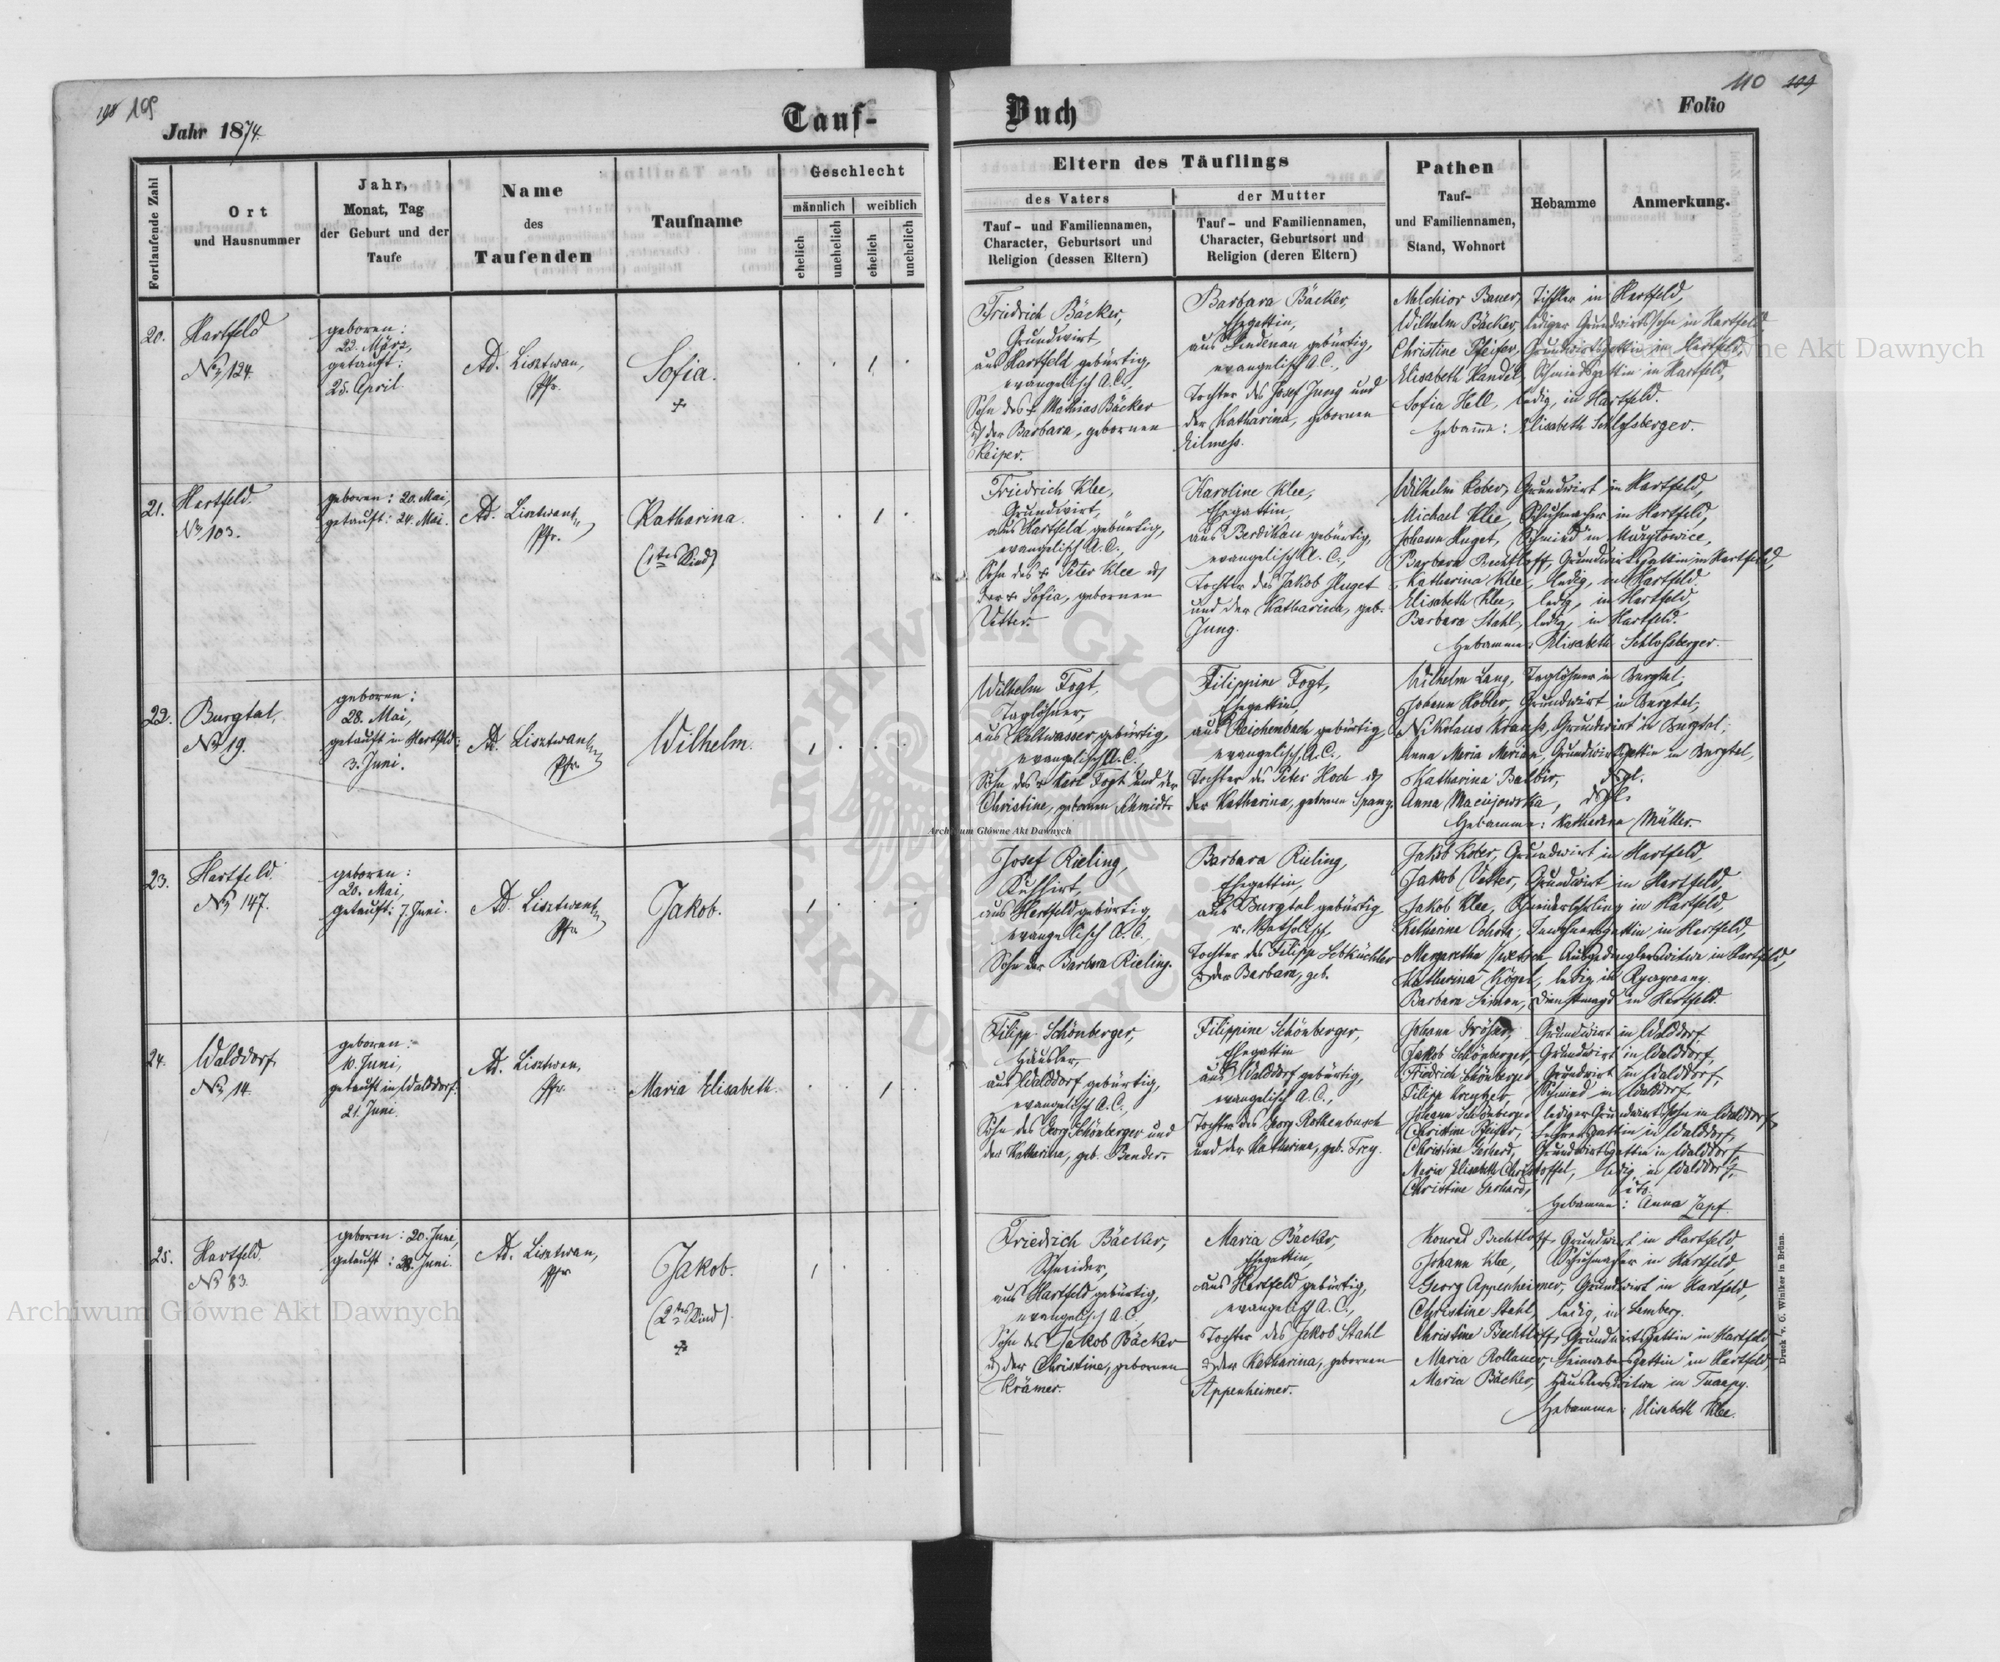 198 109
Jahr 1874.
Tauf-
Fortlaufende Zahl
Ort
und Hausnummer
Jahr,
Monat, Tag
der Geburt und der
Taufe
Name
des
Taufenden
Taufname
Geschlecht
männlich
weiblich
ehelich
unehelich
ehelich
unehelich
20.
Hartfeld
No 124.
geboren:
22. März,
getauft:
25. April
Ad. Lisztwan,
Pfr.
Sofia.
21.
Hartfeld.
No 103.
geboren: 20. Mai,
getauft: 24. Mai.
Ad. Lisztwan,
Pfr.
Katharina.
(1tes Kind)
22.
Burgtal,
No 19.
geboren:
28. Mai,
getauft in Hartfeld:
3. Juni.
Ad. Lisztwan,
Pfr.
Wilhelm.
23.
Hartfeld
No 147.
geboren:
28. Mai,
getauft: 7. Juni.
Ad. Lisztwan,
Pfr.
Jakob.
24.
Walddorf,
No 14.
geboren:
10. Juni,
getauft in Walddorf:
21. Juni.
Ad. Lisztwan,
Pfr.
Maria Elisabeth.
25.
Hartfeld
No 83.
geboren: 20. Juni,
getauft: Juni.
Ad. Lisztwan,
Pfr
Jakob.
(2tes Kind).
110 109
Buch
Folio
Eltern des Täuflings
des Vaters
Tauf- und Familiennamen,
Character, Geburtsort und
Religion (dessen Eltern)
der Mutter
Tauf- und Familiennamen,
Character, Geburtsort und
Religion (deren Eltern)
Pathen
Tauf-
und Familiennamen,
Stand, Wohnort
Hebamme
Anmerkung.
Friedrich Bäcker,
Grundwirt,
aus Hartfeld gebürtig,
evangelisch A.C.,
Sohn des + Mathias Bäcker
u der Barbara, gebornen
Keiper.
Barbara Bäcker,
Ehegattin,
aus Lindenau gebürtig,
evangelisch A.C.,
Tochter des Josef Jung und
der Katharina, gebornen
Melchior Bauer, Tischler in Hartfeld,
Wilhelm Bäcker, lediger Grundwirtssohn in Hartfeld
Christine Pfeifer, Grundwirtsgattin in Hartfeld,
Elisabeth Kandel, Schmiedsgattin in Hartfeld,
Sofia Hell, ledig, in Hartfeld.
Hebamme: Elisabeth Schloßberger.
Friedrich Klee,
Grundwirt,
aus Hartfeld gebürtig,
evangelisch A.C.,
Sohn des + Peter Klee u
der + Sofia, gebornen
Vetter.
Karoline Klee,
Ehegattin,
aus Berdikau gebürtig,
evangelisch A.C.,
Tochter des Jakob Huget
und der Katharina, geb.
Jung.
Wilhelm Kober, Grundwirt in Hartfeld,
Michael Klee, Schuhmacher in Hartfeld,
Johann Huget, Schmied in
Barbara Bechtloff, Grundwirtsgattin in Hartfeld,
Katharina Klee, ledig, in Hartfeld.
Elisabeth Klee, ledig, in Hartfeld,
Barbara Stahl, ledig, in Hartfeld.
Hebamme: Elisabeth Schloßberger.
Wilhelm Fogt,
Taglöhner,
aus Kaltwasser gebürtig,
evangelisch A.C.,
Sohn des + Karl Fogt und der
Christine, gebornen Schmidt.
Filippine Fogt,
Ehegattin,
aus Reichenbach gebürtig,
evangelisch A.C.,
Tochter des Peter Koch u
der Katharina, gebornen Spang.
Wilhelm Lang, Taglöhner in Burgtal,
Johann Kobler, Grundwirt in Burgtal;
Nikolaus Krauß, Grundwirt in Burgtal;
Anna Maria Merian, Grundwirtsgattin in Burgtal,
Katharina Balbir, detl.
Anna Maciejowska, detl.
Hebamme: Katharina Müller.
Josef Rieling,
Kuhhirt,
aus Hartfeld gebürtig,
evangelisch A.C.,
Sohn der Barbara Rieling.
Barbara Rieling,
Ehegattin,
aus Burgtal gebürtig
r. katholisch,
Tochter des Filipp Lebküchler
u der Barbara, geb.
Jakob Kober, Grundwirt in Hartfeld,
Jakob Vetter, Grundwirt in Hartfeld,
Jakob Klee, Schneiderlehrling in Hartfeld,
Katharina in Hartfeld,
Margaretha Ausgedinglerswitwe in Hartfeld,
Katharina Kögel, ledig in
Barbara Simon, Dienstmagd in Hartfeld.
Filipp Schönberger,
Häusler,
aus Walddorf gebürtig,
evangelisch A.C.,
Sohn des Georg Schönberger und
der Katharina, geb. Bender.
Filippine Schönberger,
Ehegattin
aus Walddorf gebürtig,
evangelisch A.C.,
Tochter des Georg Rothenbusch
und der Katharina, geb. Frey.
Johann Grundwirt in Walddorf,
Jakob Schönberger, Grundwirt in Walddorf,
Friedrich Schönberger, Grundwirt in Walddorf,
Filipp Kreutzer, Schmied in Walddorf
Johann Schönberger lediger Grundwirtssohn in Walddorf,
Christine Lehrersgattin in Walddorf,
Christine Gerhard, Grundwirtsgattin in Walddorf,
Maria Elisabeth Christoffel, ledig in Walddorf,
Christine Gerhard, dto
Hebamme: Anna Zapf
Friedrich Bäcker,
Schneider,
aus Hartfeld gebürtig,
evangelisch A.C.,
Sohn des Jakob Bäcker
u der Christine, gebornen
Krämer.
Maria Bäcker,
Ehegattin,
aus Hartfeld gebürtig,
evangelisch A.C.,
Tochter des Jakob Stahl
u der Katharina, gebornen
Appenheimer.
Konrad Bechtloff, Grundwirt in Hartfeld,
Johann Klee, Schuhmacher in Hartfeld,
Georg Appenheimer, Grundwirt in Hartfeld,
Christine Stahl ledig, in Lemberg.
Christine Bechtloff, Grundwirtsgattin in Hartfeld
Maria Rollauer in Hartfeld,
Maria Bäcker, Häuslerswitwe in
Hebamme: Elisabeth Klee.
Druck v. G. Winiker in Brünn.
Archiwum Główne Akt Dawnych
Archiwum Główne Akt Dawnych
Archiwum Główne Akt Dawnych
ARCHIWUM GŁÓWNE AKT DAWNYCH